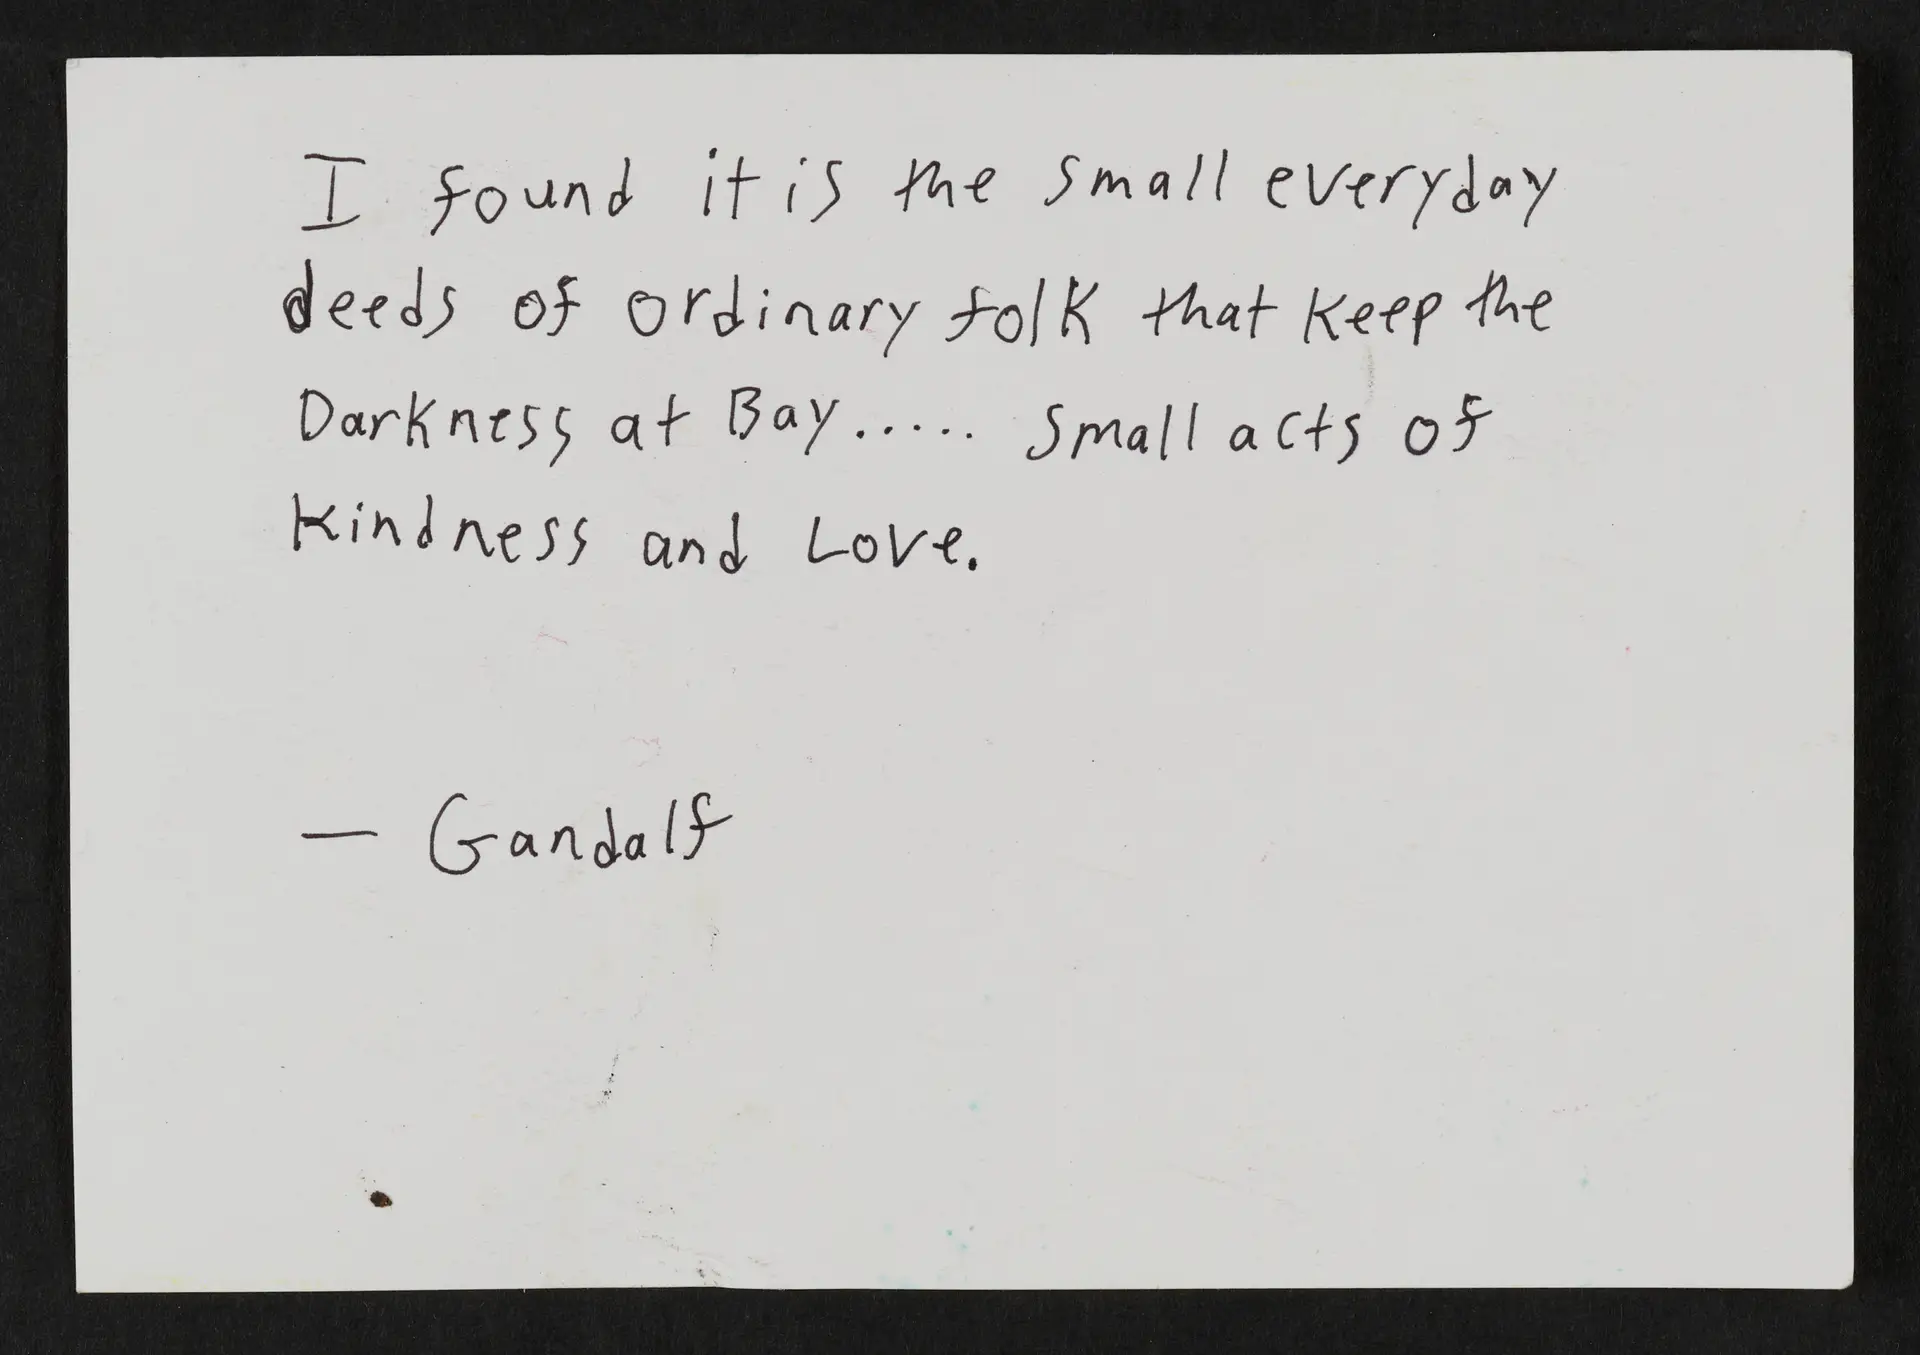 I found it is the small everyday
deeds of ordinary folk that keep the
Darkness at Bay..... Small acts of
kindness and Love.
— Gandalf